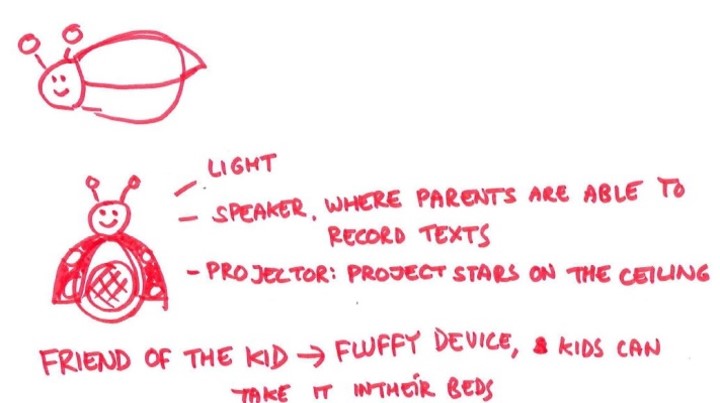 LIGHT
SPEAKER, WHERE PARENTS ARE ABLE TO
RECORD TEXTS
- PROJECTOR: PROJECT STARS ON THE CEILING
FRIEND OF THE KID → FLUFFY DEVICE, & KIDS CAN
TAKE IT INTHEIR BEDS